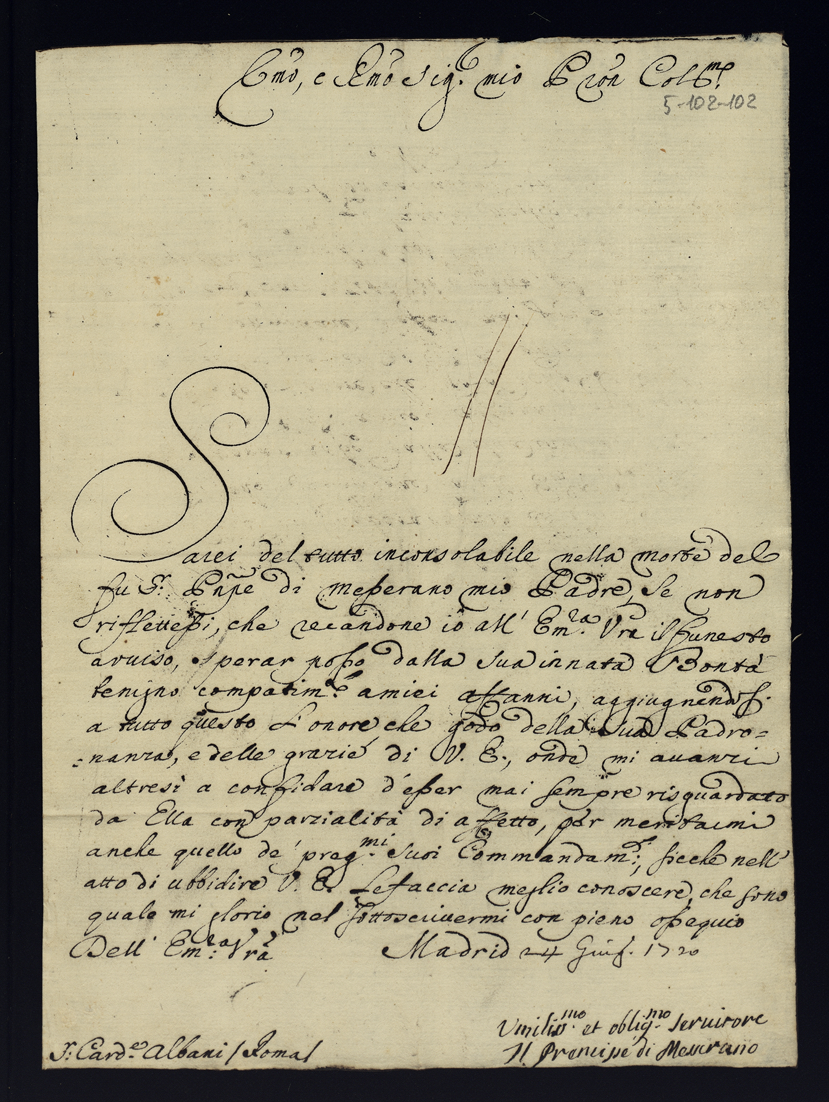 Emo, e Rmo Sig.r mio Pron Colmo
5-102-102
Sarei del tutto inconsolabile nella morte del
fu Sr. Pnpe di Messerano mio Padre, se non
riflettessi, che recandone io all' Em.za Vra il funesto
avviso, sperar posso dalla sua innata Bontà
benigno compatim.to a miei affanni, aggiugnendosi
a tutto questo l'onore che godo della sua Padro=
=nanza, e delle grazie di V. E., onde mi avanzi
altresì a confidare d'esser mai sempre risguardato
da Ella con parzialità di affetto, per meritarmi
anche quello de' preg.mi suoi Commandam.ti, sicche nell'
atto di ubbidire V. E. le faccia meglio conoscere, che sono
quale mi glorio nel sottoscrivermi con pieno ossequio
Dell' Em.za Vra Madrid 24 Giug. 1720
Umiliss.mo et oblig.mo servitore
Sr. Card.le Albani / Roma / Il Prencipe di Messerano